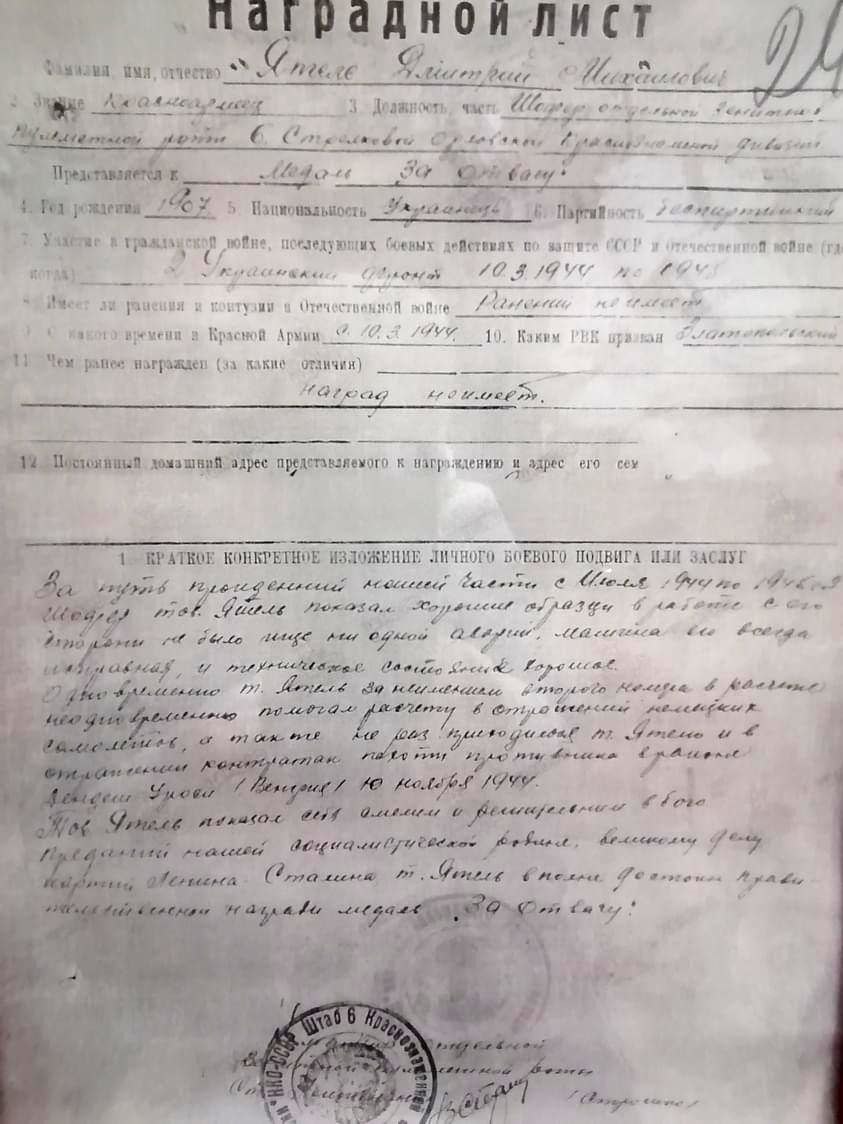 Наградной лист
Фамилия, имя, отчество Ятель Дмитрий Михайлович
2. Звание Красноармеец 3. Должность, часть Шофер отдельной зенитно
пулеметной роти 6. Стрелковой Орловской Краснознаменой дивизии
Представляется к Медаль За отвагу
4. Год рождения 1907 5. Национальность Украинець 6. Партийность беспартийний
7. Участие в гражданской войне, последующих боевых действиях по защите СССР и Отечественной войне (где
когда) 2 Украинский фронт 10.3.1944 по 1945
8. Имеет ли ранения и контузии в Отечественной войне Ранений неимеет
9. С какого времени в Красной Армии с 10.3.1944. 10. Каким РВК призван Златопольский
11. Чем ранее награжден (за какие отличия)
наград неимеет.
12. Постоянный домашний адрес представляемого к награждению и адрес его сем
1. КРАТКОЕ КОНКРЕТНОЕ ИЗЛОЖЕНИЕ ЛИЧНОГО БОЕВОГО ПОДВИГА ИЛИ ЗАСЛУГ
За путь пройденний нашей части с Июля 1944 по
Шофер тов. Ятель показал хорошие образци в работе с его
сторони не было ище ни одной аварий, машина его всегда
исправная, и техническое состояние хорошое.
Одновременно т. Ятель за неимением второго номера в расчете
неодновременно помогал расчету в отражений немецких
самолетов, а также не раз приходился т. Ятелю и в
отражений контратак пехоти противника в районе
(Венгрия) 10 ноября 1944.
Тов Ятель показал себя смелим и решительним в бою
Преданий нашей социалистической родине, великому делу
партий Ленина - Сталина т. Ятель вполне достоин Прави-
тельственной награди медаль За отвагу.
НКО-СССР Штаб 6 Краснознаменной
отдельной
пулеметной роти